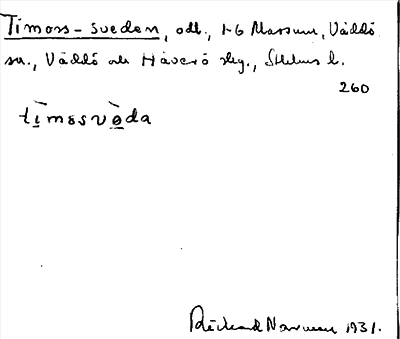 Timoss-sveden, odl., 1-6 Massum, Väddö
sn., Väddö och Häverö slg., Sthlms l.
260
tìmosvèda
Rickard Norman 1931.